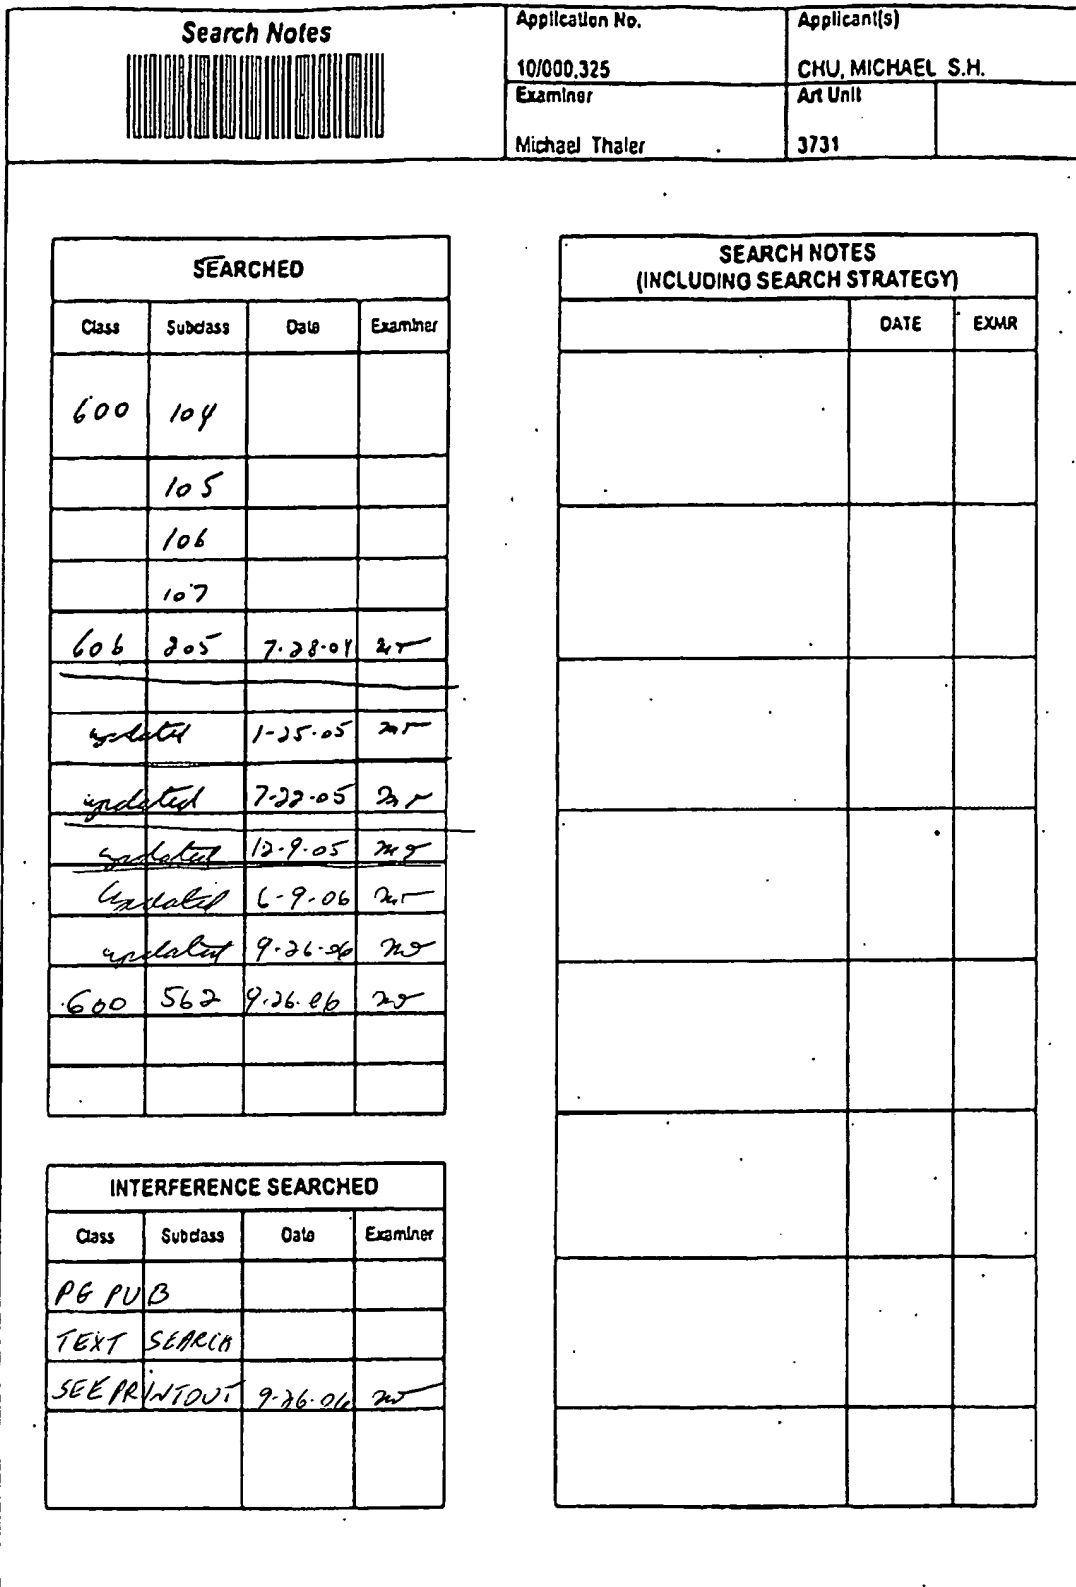 Search Notes
Application No.
Applicant(s)
10/000,325
CHU, MICHAEL S.H.
Examiner
Art Unit
Michael Thaler
3731
SEARCHED
Class Subclass Date Examiner
600 104
105
106
107
606 205 7-28-04 MT
updated 1-25-05 MT
updated 7-22-05 MT
updated 12-9-05 MT
updated 6-9-06 MT
updated 9-26-06 MT
600 562 9-26-06 MT
INTERFERENCE SEARCHED
Class Subclass Date Examiner
PG PUB
TEXT SEARCH
SEE PRINTOUT 9-26-06 MT
SEARCH NOTES
(INCLUDING SEARCH STRATEGY)
DATE EXMR